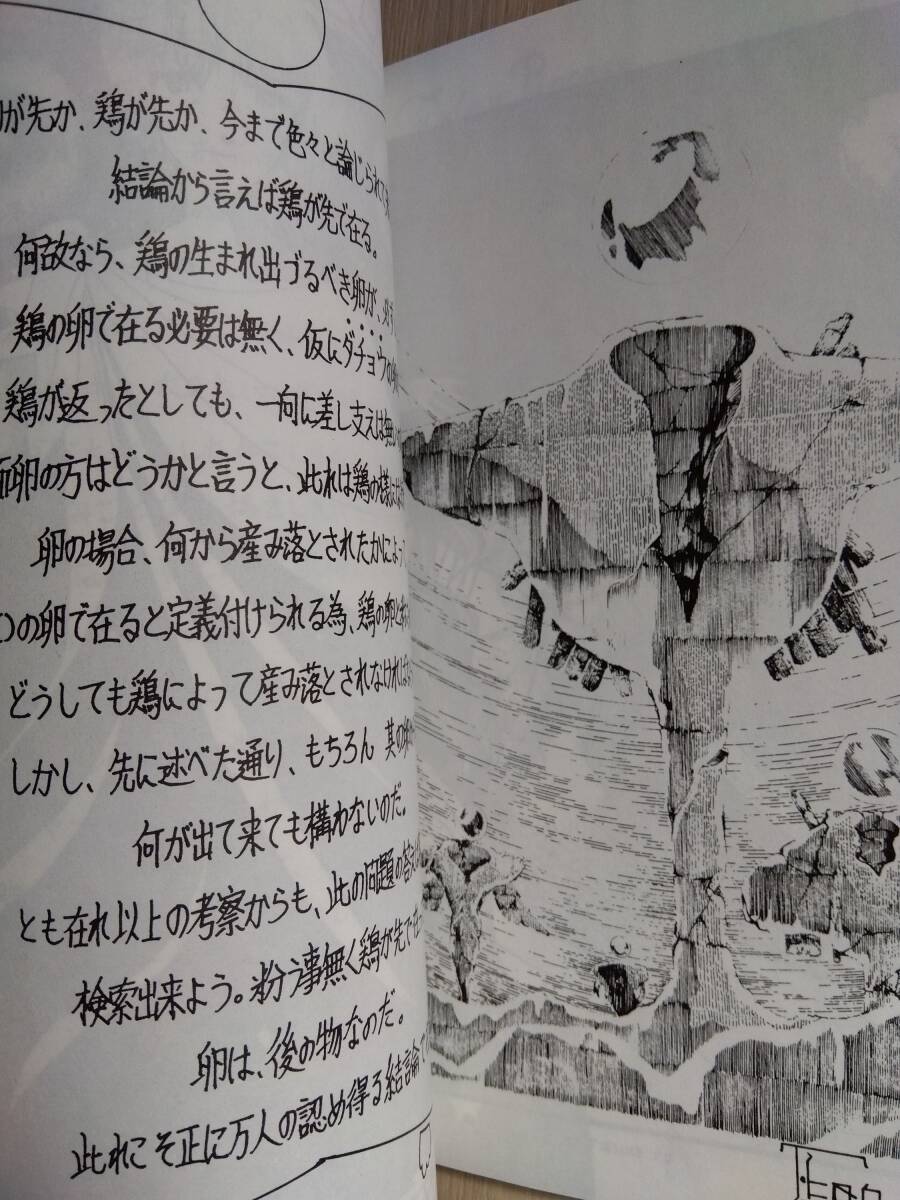 が先か、鶏が先か、今まで色々と論じられて
結論から言えば鶏が先で在る。
何故なら、鶏の生まれ出づるべき卵が、必
鶏の卵で在る必要は無く、仮にダチョウの
鶏が返ったとしても、一向に差し支えは無
卵の方はどうかと言うと、此れは鶏の様に
卵の場合、何から産み落とされたかによっ
の卵で在ると定義付けられる為、鶏の卵と
どうしても鶏によって産み落とされなければ
しかし、先に述べた通り、もちろん 其の
何が出て来ても構わないのだ。
とも在れ以上の考察からも、此の問題の答
検索出来よう。紛う事無く鶏が先で在
卵は、後の物なのだ。
此れこそ正に万人の認め得る結論で